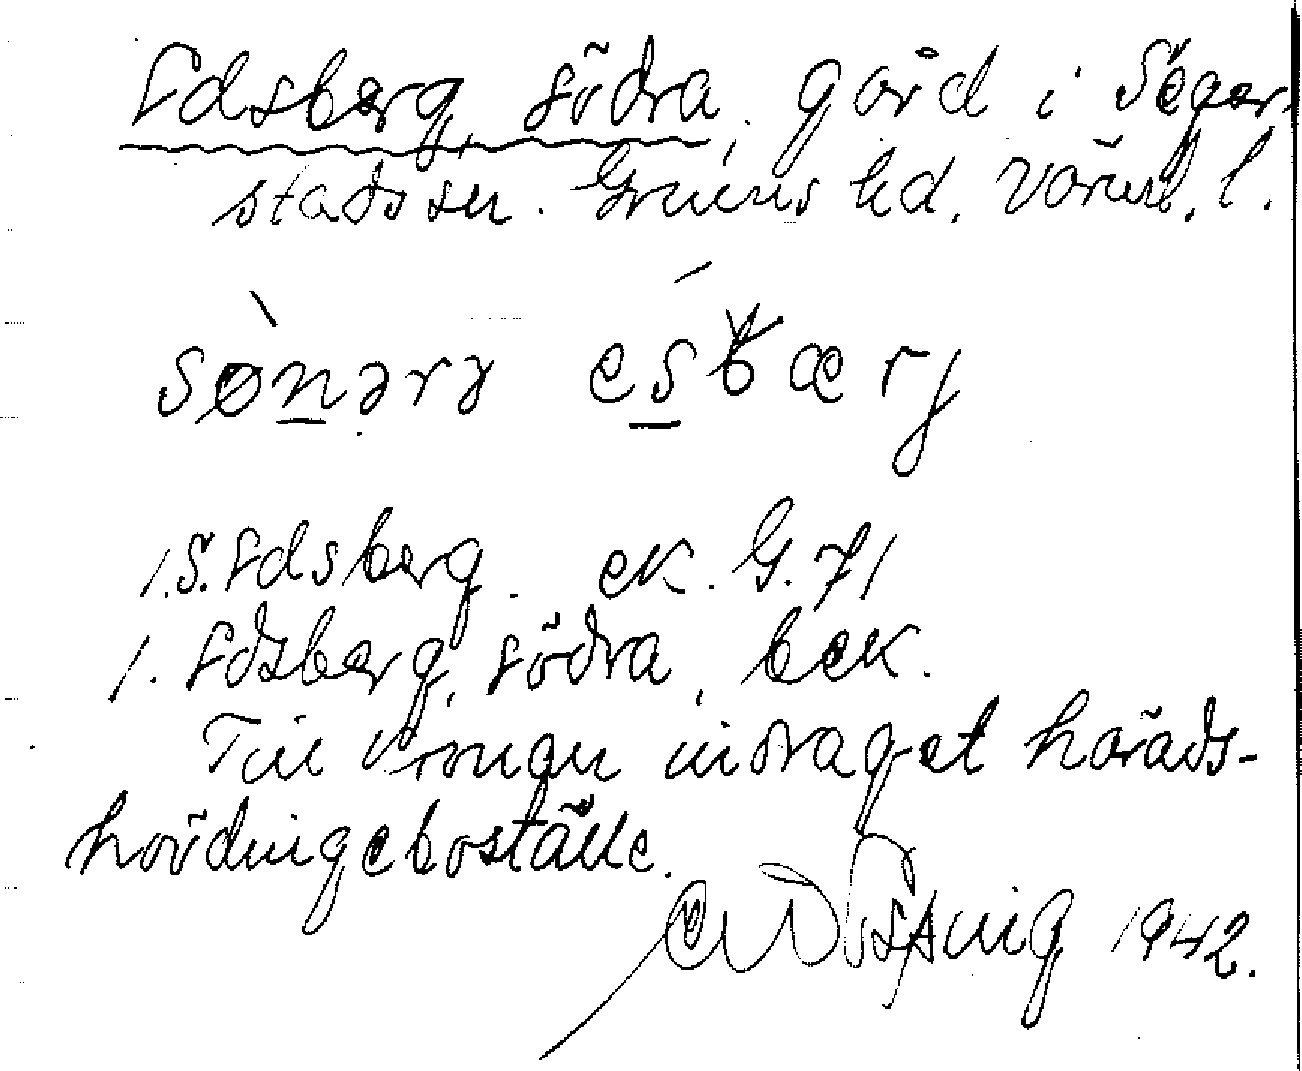 Edsberg, södra, gård i Seger-
stads sn. Grums hd. Värml. l.
sønərə esbærj
1. S. Edsberg. ek. G. 71
1. Edsberg, södra, bek.
Till kronan indraget härads-
hövdingeboställe.
1942.